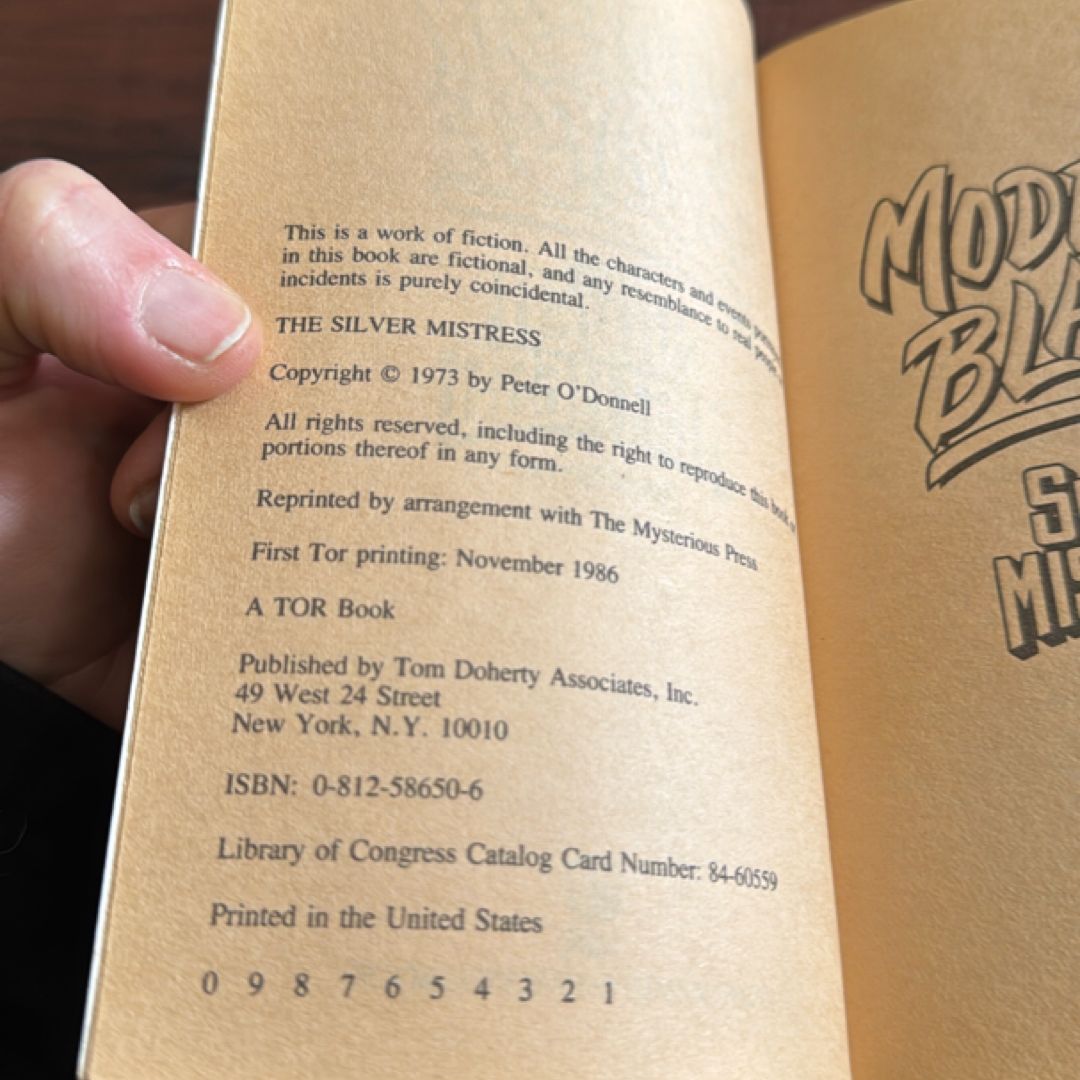 This is a work of fiction. All the characters and events
in this book are fictional, and any resemblance to real
incidents is purely coincidental.
THE SILVER MISTRESS
Copyright © 1973 by Peter O'Donnell
All rights reserved, including the right to reproduce this book
portions thereof in any form.
Reprinted by arrangement with The Mysterious Press
First Tor printing: November 1986
A TOR Book
Published by Tom Doherty Associates, Inc.
49 West 24 Street
New York, N.Y. 10010
ISBN: 0-812-58650-6
Library of Congress Catalog Card Number: 84-60559
Printed in the United States
0 9 8 7 6 5 4 3 2 1